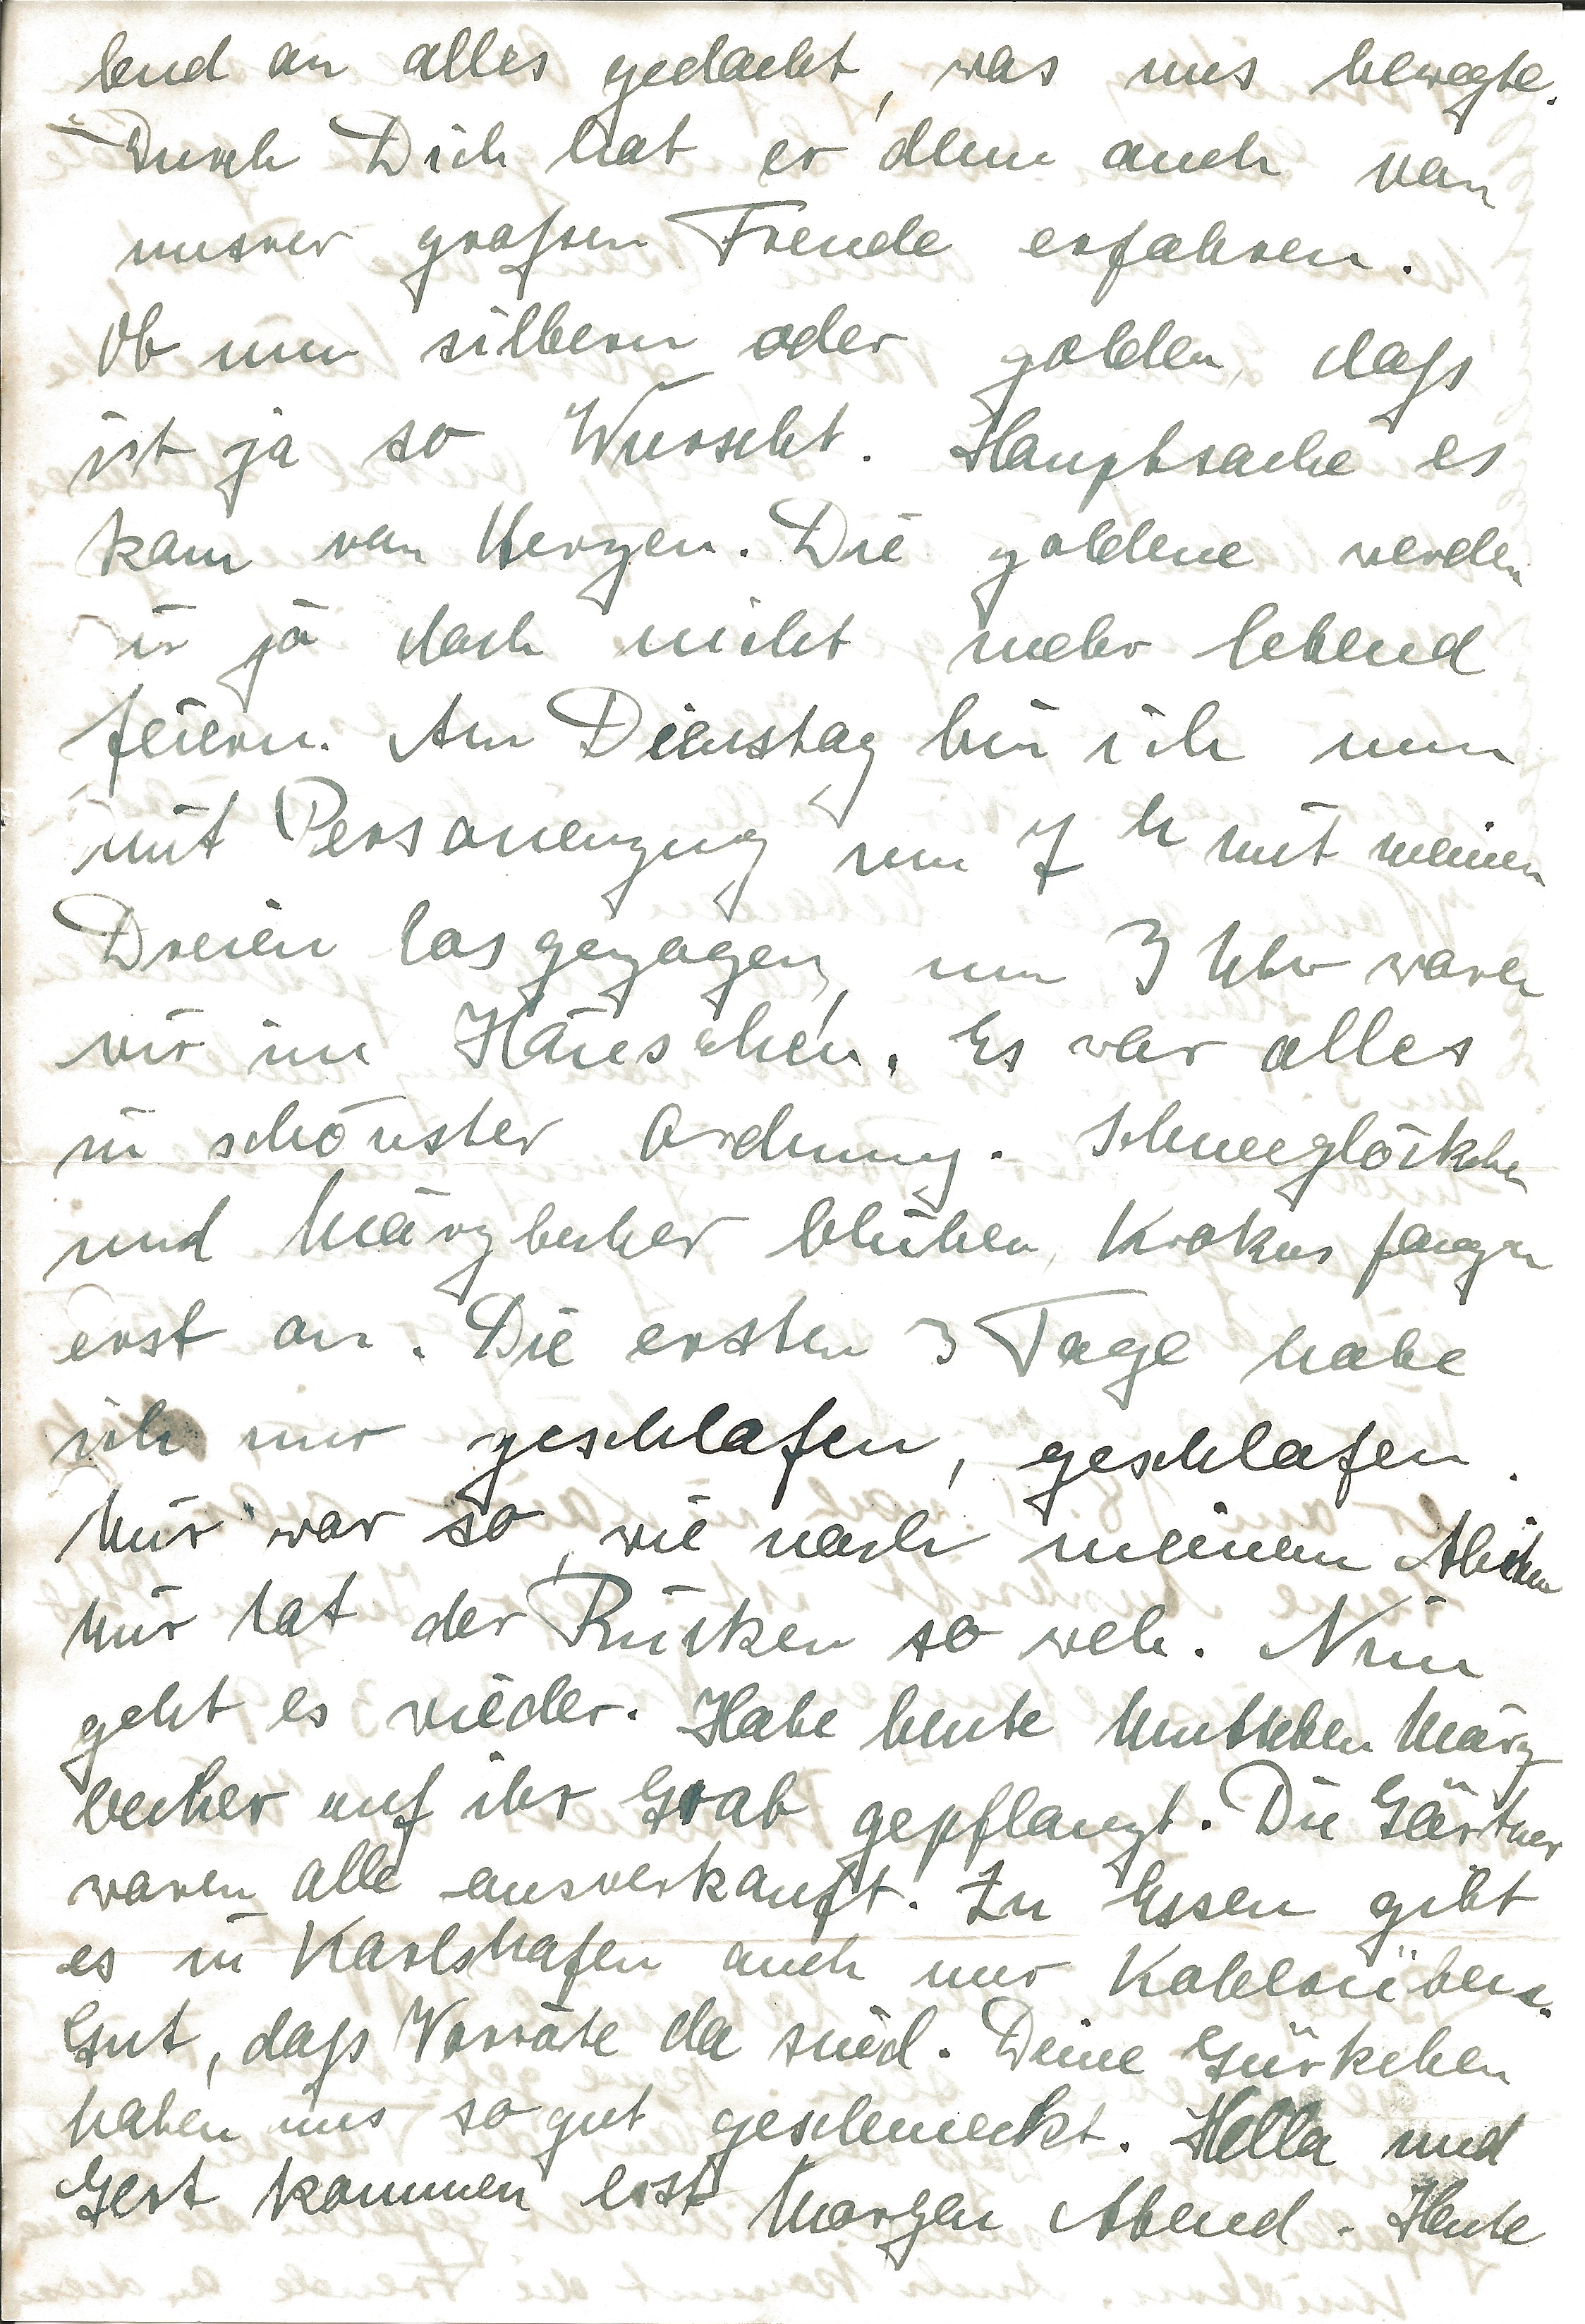 lend an alles gedacht, was uns bewegte.
Durch Dich hat er denn auch von
unsrer großen Freude erfahren.
Ob nun silbern oder golden, daß
ist ja so Wurscht. Hauptsache es
kam von Herzen. Die goldene werden
wir ja doch nicht mehr lebend
feiern. Am Dienstag bin ich nun
mit Personenzug um 7 h mit meinen
Dreien losgezogen, um 3 Uhr waren
wir im Häuschen. Es war alles
in schönster Ordnung. Schneeglöckchen
und Märzbecher blühen, Krokus fangen
erst an. Die ersten 3 Tage habe
ich nur geschlafen, geschlafen.
Mir war so, wie nach meinem
Mir tat der Rücken so weh. Nun
geht es wieder. Habe heute Muttchen März
becher auf ihr Grab gepflanzt. Die Gärtner
waren alle ausverkauft. Zu Essen gibt
es in Karlshafen auch nur Kohlrüben.
Gut, daß Vorräte da sind. Deine Gürkchen
haben uns so gut geschmeckt. Hella und
Gert kommen erst Morgen Abend. Heute